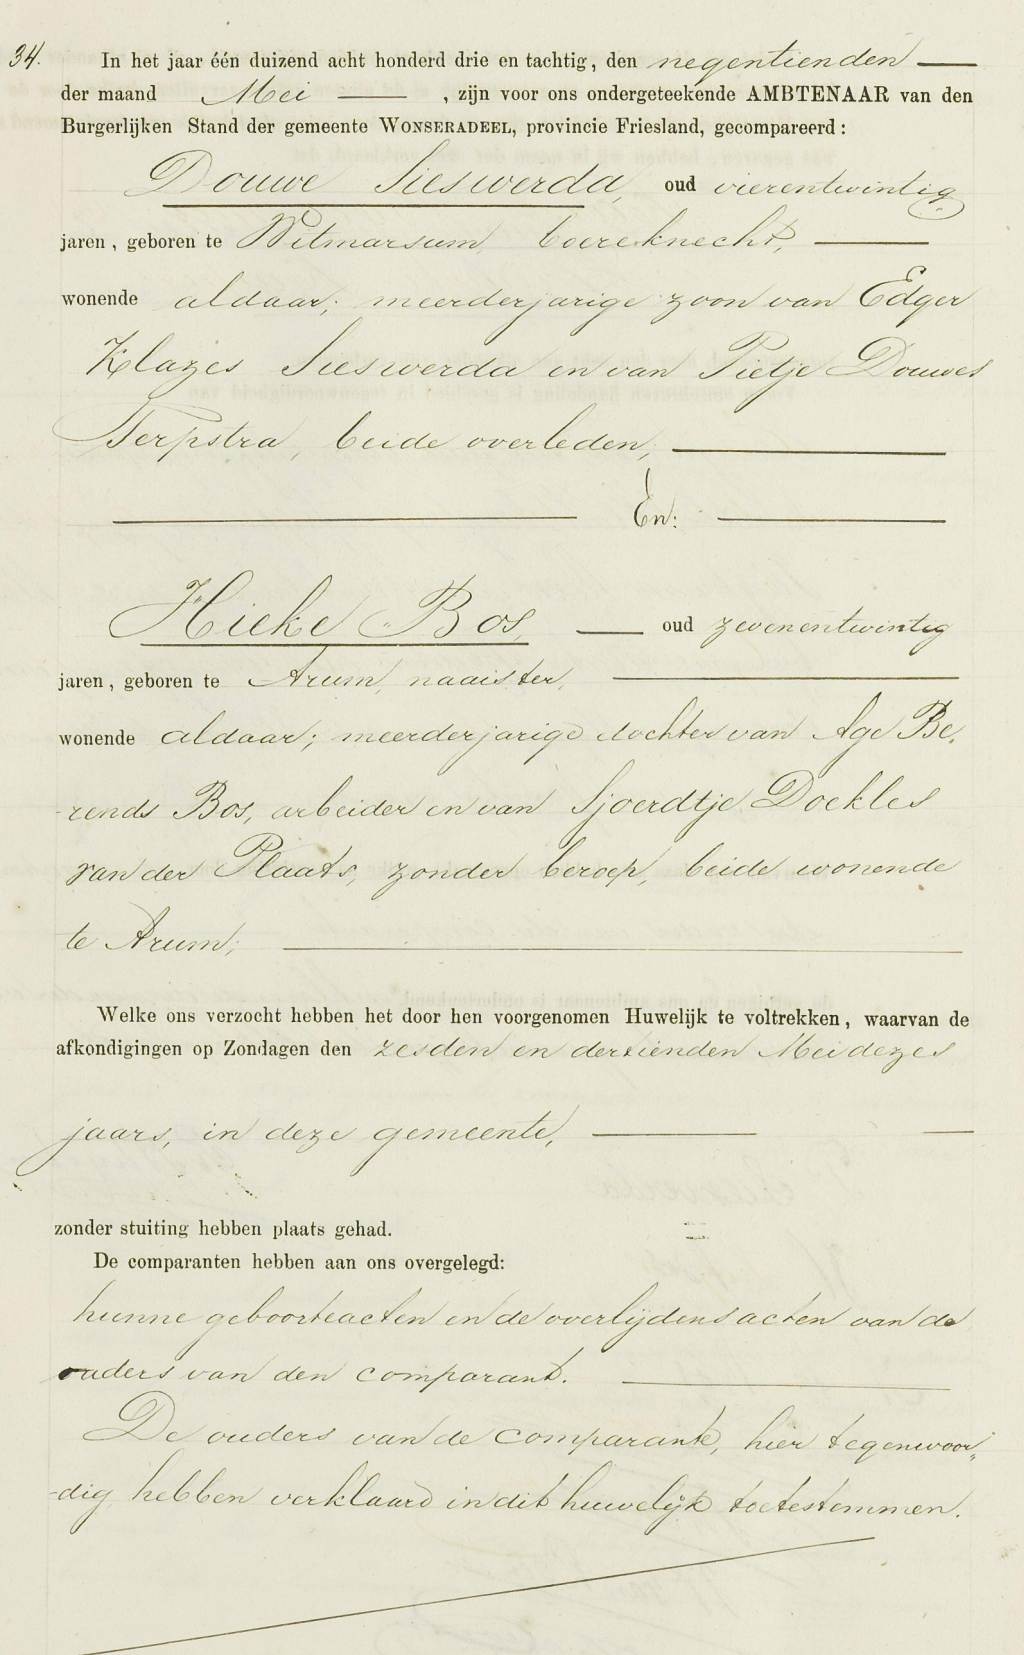 34. In het jaar één duizend acht honderd drie en tachtig, den negentienden
der maand Mei, zijn voor ons ondergeteekende AMBTENAAR van den
Burgerlijken Stand der gemeente WONSERADEEL, provincie Friesland, gecompareerd:
Douwe Sieswerda, oud vierentwintig
jaren, geboren te Witmarsum, boereknecht,
wonende aldaar; meerderjarige zoon van Edger
Klazes Sieswerda en van Pietje Douwes
Terpstra, beide overleden;
En:
Hieke Bos, oud zevenentwintig
jaren, geboren te Arum, naaister,
wonende aldaar; meerderjarige dochter van Age Be-
rends Bos, arbeider en van Sjoerdtje Doekles
van der Plaats, zonder beroep, beide wonende
te Arum;
Welke ons verzocht hebben het door hen voorgenomen Huwelijk te voltrekken, waarvan de
afkondigingen op Zondagen den zesden en dertienden Mei dezes
jaars, in deze gemeente,
zonder stuiting hebben plaats gehad.
De comparanten hebben aan ons overgelegd:
hunne geboorteacten en de overlijdensacten van de
ouders van den comparant.
De ouders van de comparante, hier tegenwoor-
dig hebben verklaard in dit huwelijk toetestemmen.